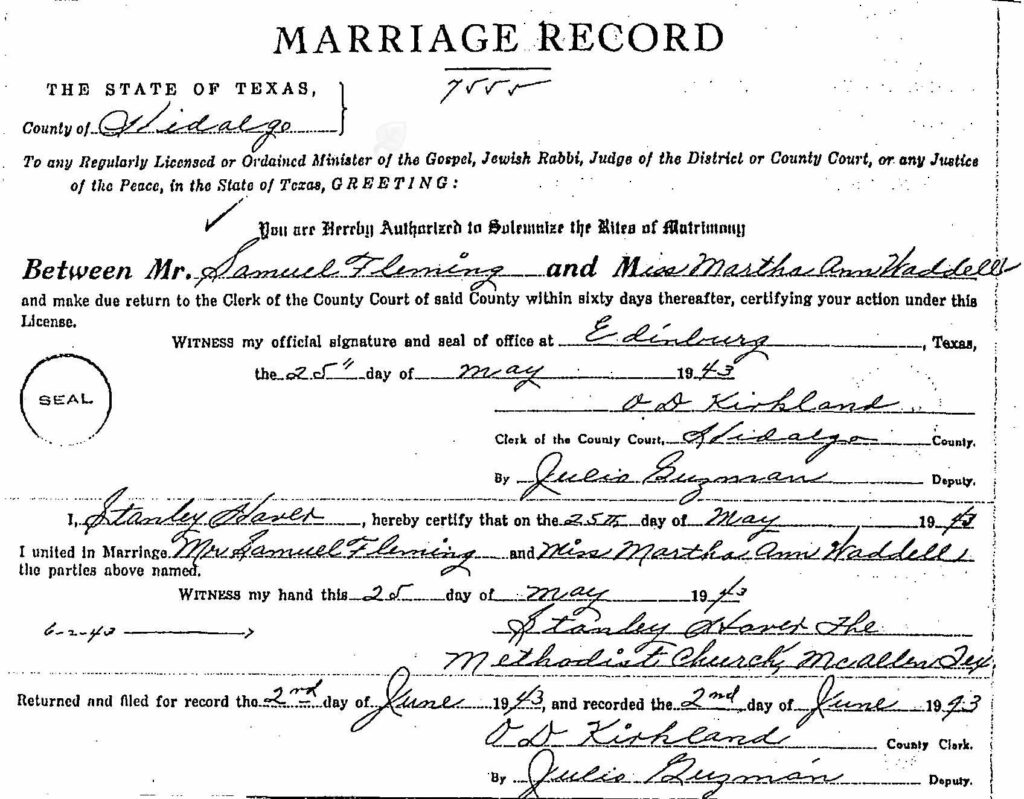 MARRIAGE RECORD
7555
THE STATE OF TEXAS,
County of Hidalgo
To any Regularly Licensed or Ordained Minister of the Gospel, Jewish Rabbi, Judge of the District or County Court, or any Justice
of the Peace, in the State of Texas, GREETING:
You are Hereby Authorized to Solemnize the Rites of Matrimony
Between Mr. Samuel Fleming and Miss Martha Ann Waddell
and make due return to the Clerk of the County Court of said County within sixty days thereafter, certifying your action under this
License.
WITNESS my official signature and seal of office at Edinburg, Texas,
the 25" day of May 1943
SEAL
O D Kirkland
Clerk of the County Court, Hidalgo County.
By Julio Guzman Deputy.
I, Stanley Haver, hereby certify that on the 25th day of May 1943
I united in Marriage Mr Samuel Fleming and Miss Martha Ann Waddell,
the parties above named.
WITNESS my hand this 25 day of May 1943
6-2-43
Stanley Haver The
Methodist Church, McAllen Tex.
Returned and filed for record the 2nd day of June 1943, and recorded the 2nd day of June 1943
O D Kirkland County Clerk.
By Julio Guzman Deputy.